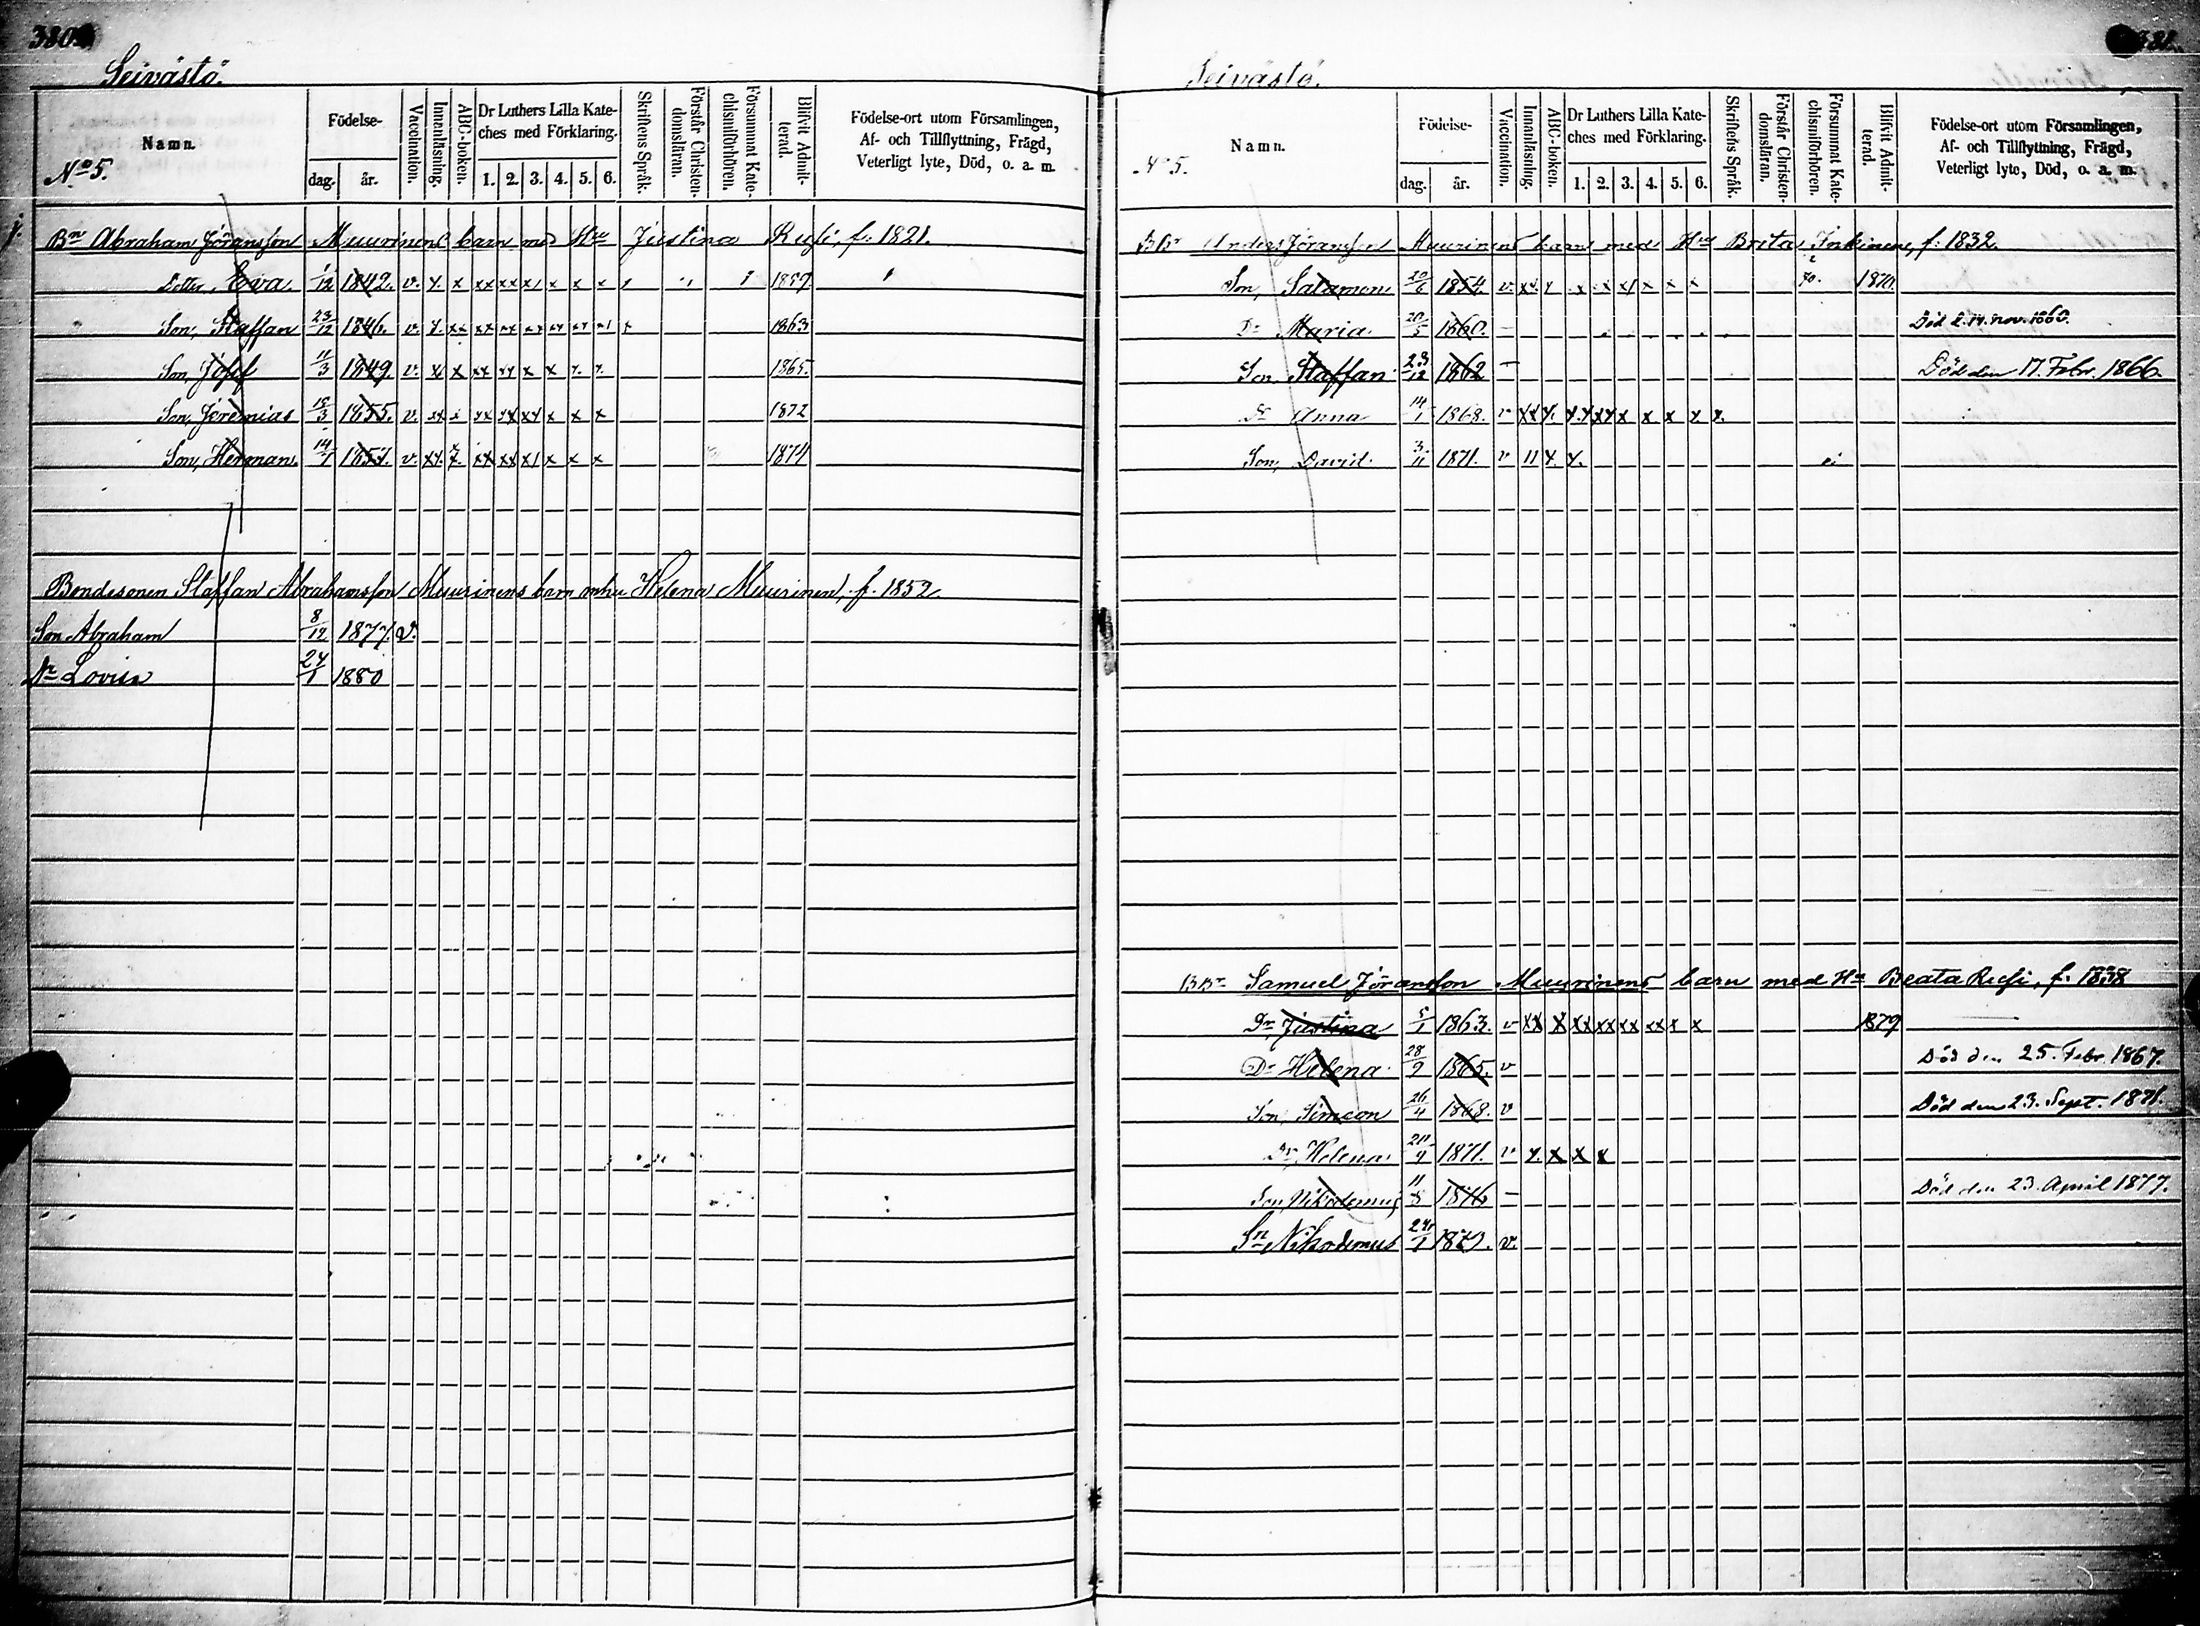 380
Seivästö.
Namn.
No 5.
Födelse-
dag. år.
Vaccination.
Innanläsning.
ABC-boken.
Dr Luthers Lilla Kate-
ches med Förklaring.
1. 2. 3. 4. 5. 6.
Skriftens Språk.
Förstår Christen-
domsläran.
Försummat Kate-
chismiförhören.
Blifvit Admit-
terad.
Födelse-ort utom Församlingen,
Af- och Tillflyttning, Frägd,
Veterligt lyte, Död, o. a. m.
Bn Abraham Jöransson Muurinens barn med Hru Justina Rusi, f. 1821.
Dotter, Eva 1/12 1842. v. x. x xx xx x/ x x x 1859
Son, Staffan 23/12 1846. v. x. xx xx xx xx xx xx x/ x 1863
Son, Josef 11/3 1849 v. x x xx xx x x x. x. 1865.
Son, Jeremias 15/3 1855. v. xx x xx xx xx x x x 1872
Son, Herman. 14/1 1857. v. xx. x. xx xx x/ x x x 1874
Bondesonen Staffan Abrahamsson Muurinens barn mhu Helena Muurinen, f. 1852.
Son Abraham 8/12 1877. v.
Dr Lovisa 24/1 1880
381.
Seivästö.
Namn.
No 5.
Födelse-
dag. år.
Vaccination.
Innanläsning.
ABC-boken.
Dr Luthers Lilla Kate-
ches med Förklaring.
1. 2. 3. 4. 5. 6.
Skriftens Språk.
Förstår Christen-
domsläran.
Försummat Kate-
chismiförhören.
Blifvit Admit-
terad.
Födelse-ort utom Församlingen,
Af- och Tillflyttning, Frägd,
Veterligt lyte, Död, o. a. m.
BBr Anders Jöransson Muurinens barn med Hru Breta f. 1832.
Son, Salamon 20/6 1854. v. xx x x x x/ x x x 70. 1870.
Dr Maria 20/5 1860. – Död d. 14. nov. 1860.
Son Staffan 23/12 1862 – Död den 17. Febr. 1866
Dr Anna 14/1 1868. v xx x. x.x xx x x x x. x.
Son, David 3/11 1871. v 11 x. x.
BBr Samuel Jöransson Muurinens barn med Hu Beata Rusi, f. 1838
Dr, Justina 5/1 1863. v xx x xx xx xx xx x x 1879
Dr Helena 28/9 1865. v Död den 25. Febr. 1867.
Son, Simeon 26/4 1868. v Död den 23. Sept. 1871.
Dr, Helena 1871. v x. x x x
Son, Nikodemus 11/8 1876 – Död den 23. April 1877.
Sn Nikodemus 24/1 1879. v.